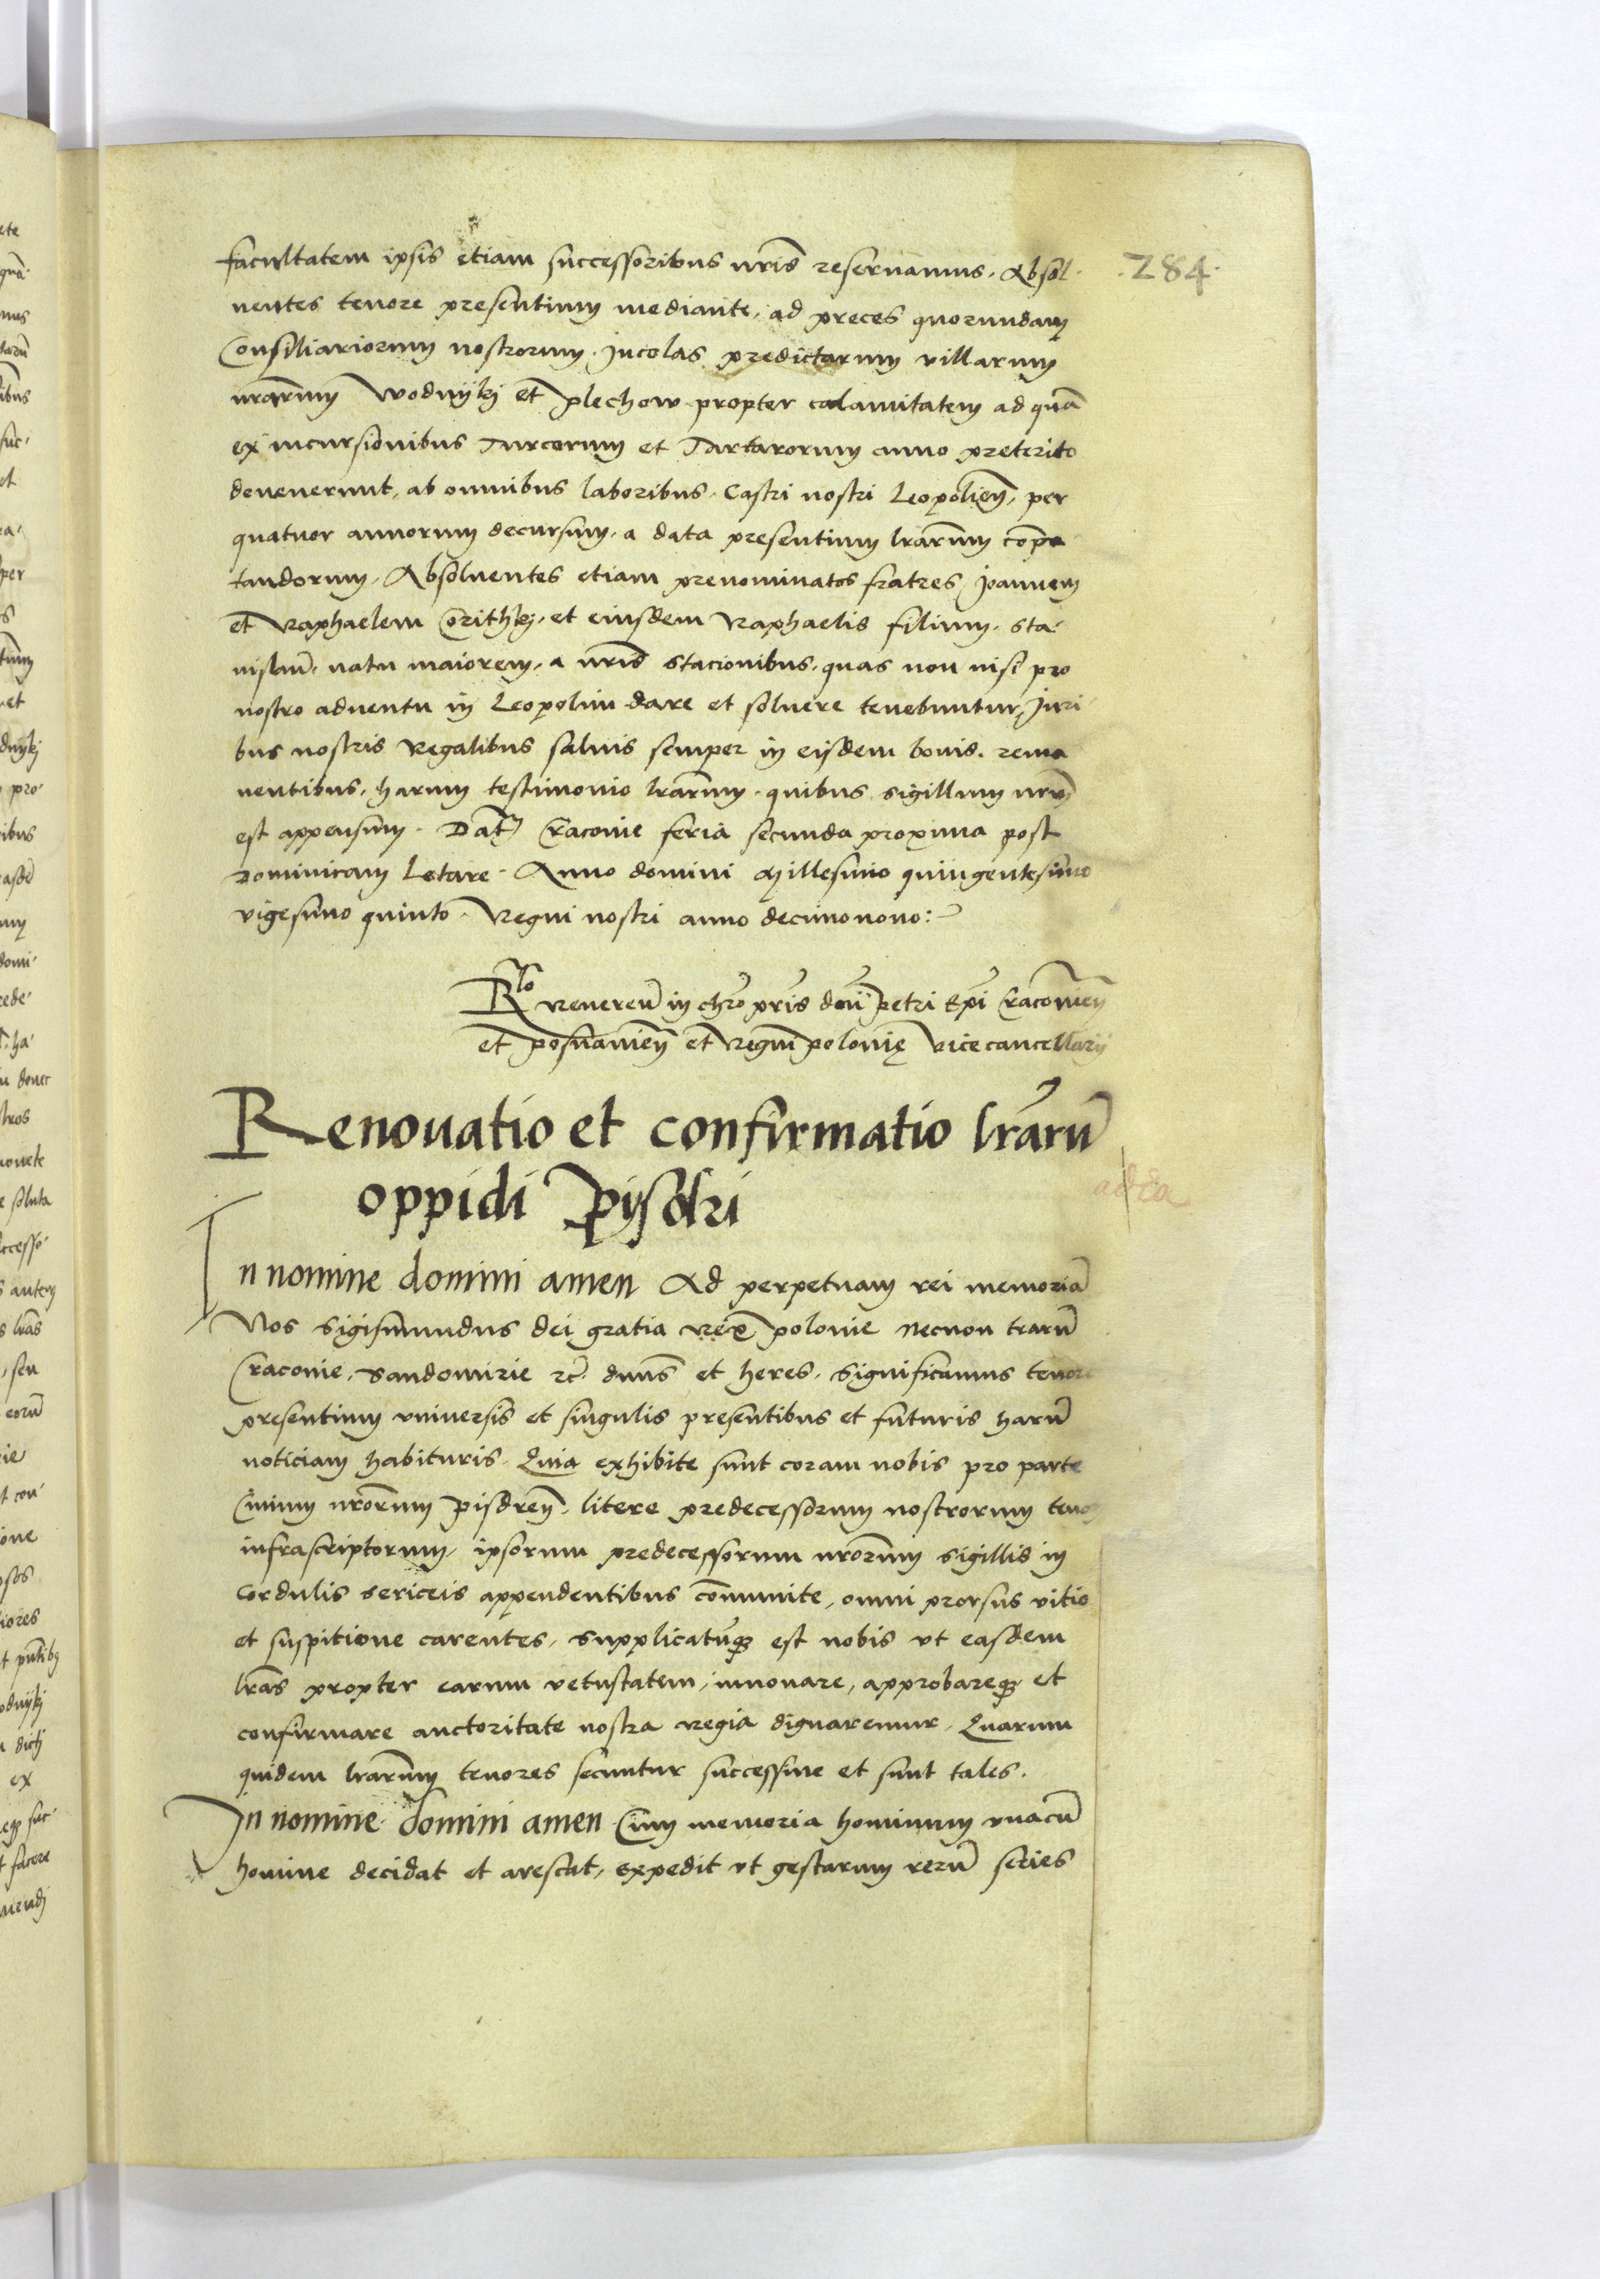 284
facultatem ipsis etiam successoribus nrīs reseruamus. Absol-
uentes tenore presentium mediante, ad preces quorundam
Consiliariorum nostrorum. Incolas predictarum villarum
nrārum Wodnyky et Plechow propter calamitatem ad quā
ex incursionibus Turcorum et Tartarorum anno preterito
deuenerunt, ab omnibus laboribus Castri nostri Leopolieñ, per
quatuor annorum decursum, a data presentium lrārum compu
tandorum, Absoluentes etiam prenominatos fratres Joannem
et Raphaelem et eiusdem Raphaelis filium, Sta-
nislaū, natu maiorem, a nrīs stacionibus, quas non nisi pro
nostro aduentu in Leopolim dare et soluere tenebuntur, Juri
bus nostris Regalibus saluis semper in eisdem bonis rema
nentibus, harum testimonio lrārum quibus sigillum nrūm
est appensum. Dat̄ Cracouie feria secunda proxima post
Dominicam Letare. Anno domini Millesimo quingentesimo
vigesimo quinto. Regni nostri anno decimonono:
Rlo Reuereñ in chrō prīs dnī Petri Epī Cracouieñ
et Posnanieñ et Regni polonię vicecancellarij
Renouatio et confirmatio lrārū
oppidi Pysdri
In nomine domini amen Ad perpetuam rei memoriā
Nos Sigismundus dei gratia rex polonie necnon trarū
Cracouie, Sandomirie zc̄ dnūs et heres. Significamus tenore
presentium vniuersis et singulis presentibus et futuris harū
noticiam habituris. Quia exhibite sunt coram nobis pro parte
Ciuium nrōrum Pisdreñ, litere predecessorum nostrorum
infrascriptorum, ipsorum predecessorum nrōrum sigillis in
cordulis sericeis appendentibus cōmunite, omni prorsus vitio
et suspitione carentes, Supplicatūq; est nobis vt easdem
lrās propter earum vetustatem, innouare, approbareq; et
confirmare auctoritate nostra regia dignaremur. Quarum
quidem lrārum tenores secuntur successiue et sunt tales.
In nomine domini amen Cum memoria hominum vnacū
homine decidat et arescat, expedit vt gestarum rerū series